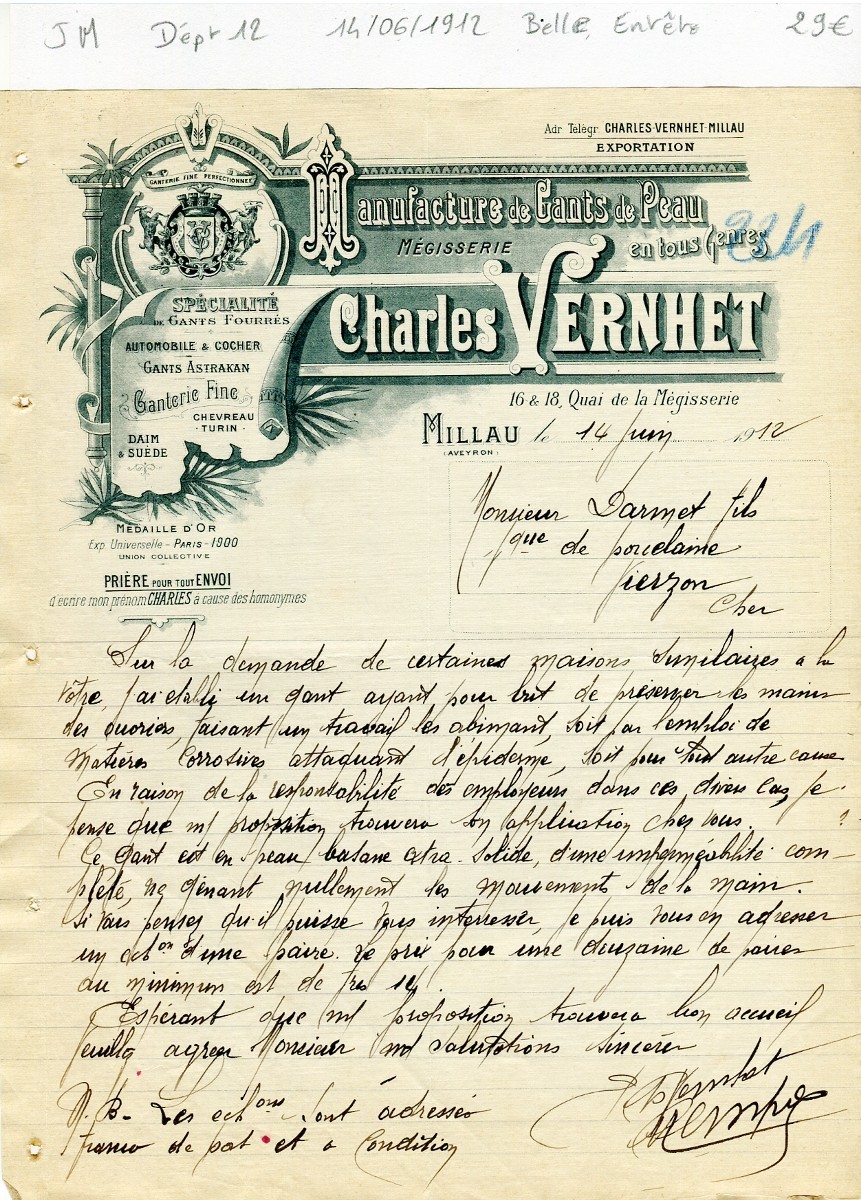 JM Dépt 12 14/06/1912 Belle Entête 29€
Adr. Télégr. CHARLES-VERNHET-MILLAU
EXPORTATION
GANTERIE FINE PERFECTIONNÉE
Manufacture de Gants de Peau
MÉGISSERIE en tous Genres
Charles VERNHET
SPÉCIALITÉ
DE GANTS FOURRÉS
AUTOMOBILE & COCHER
GANTS ASTRAKAN
Ganterie Fine
CHEVREAU
- TURIN -
DAIM
& SUÈDE
16 & 18, Quai de la Mégisserie
MILLAU le 14 Juin 1912
(AVEYRON)
MÉDAILLE D'OR
Exp. Universelle - PARIS - 1900
UNION COLLECTIVE
PRIÈRE POUR TOUT ENVOI
d'écrire mon prénom CHARLES à cause des homonymes
Monsieur Darmet fils
que de porcelaine
Vierzon
Cher
Sur la demande de certaines maisons similaires a la
vôtre, j'ai etabli un gant ayant pour but de préserver les mains
des ouvriers, faisant un travail les abimant, soit par l'emploi de
matières corrosives attaquant l'épiderme, soit pour tout autre cause
En raison de la responsabilité des employeurs dans ces divers cas, je
pense que ma proposition trouvera son application chez vous.
Ce Gant est en peau basane extra-solide, d'une imperméabilité com-
plète, ne gênant nullement les mouvements de la main.
Si vous pensez qu'il puisse vous interresser, je puis vous en adresser
un echon d'une paire. Le prix pour une douzaine de paires
au minimum est de frs
Espérant que ma proposition trouvera bon accueil
veuillez agréer Monsieur mes salutations sincères
Vernhet
N.B- Les echons sont adressés
franco de port et a Condition